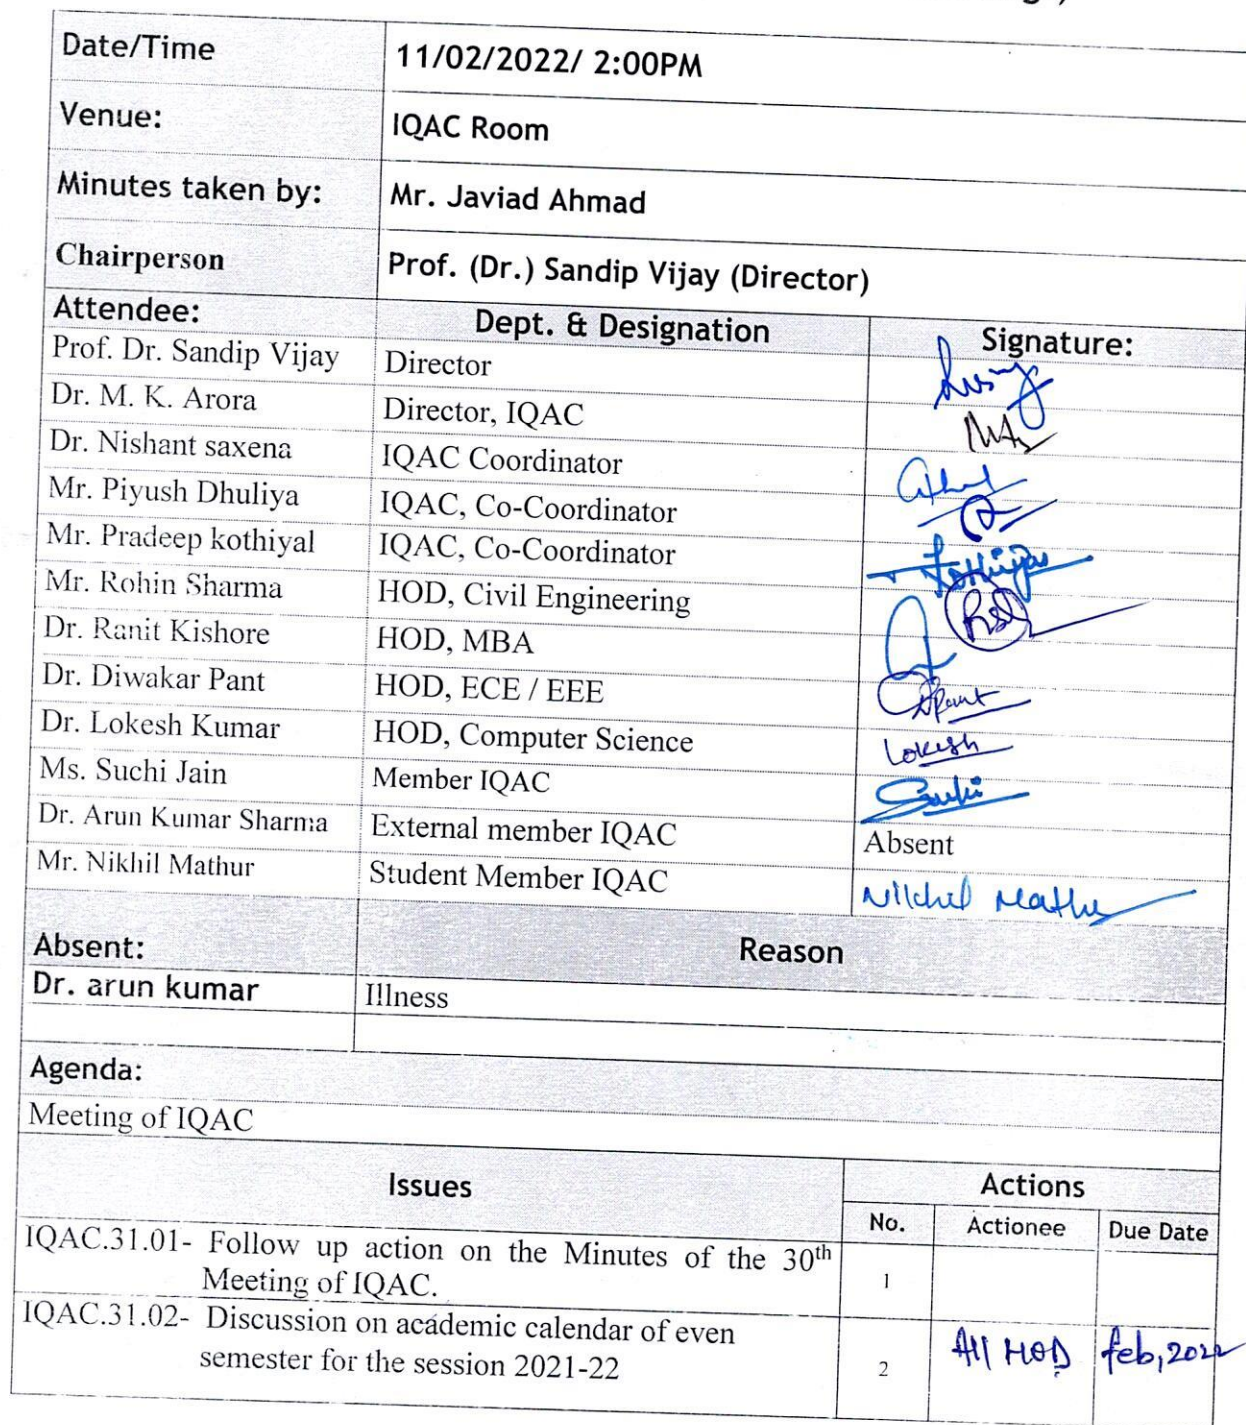 Date/Time 11/02/2022/ 2:00PM
Venue: IQAC Room
Minutes taken by: Mr. Javiad Ahmad
Chairperson Prof. (Dr.) Sandip Vijay (Director)
Attendee: Dept. & Designation Signature:
Prof. Dr. Sandip Vijay Director
Dr. M. K. Arora Director, IQAC
Dr. Nishant saxena IQAC Coordinator
Mr. Piyush Dhuliya IQAC, Co-Coordinator
Mr. Pradeep kothiyal IQAC, Co-Coordinator
Mr. Rohin Sharma HOD, Civil Engineering
Dr. Ranit Kishore HOD, MBA
Dr. Diwakar Pant HOD, ECE / EEE
Dr. Lokesh Kumar HOD, Computer Science Lokesh
Ms. Suchi Jain Member IQAC
Dr. Arun Kumar Sharma External member IQAC Absent
Mr. Nikhil Mathur Student Member IQAC
Absent: Reason
Dr. arun kumar Illness
Agenda:
Meeting of IQAC
Issues Actions
No. Actionee Due Date
IQAC.31.01- Follow up action on the Minutes of the 30th
Meeting of IQAC. 1
IQAC.31.02- Discussion on academic calendar of even
semester for the session 2021-22 2 All HOD feb,2022